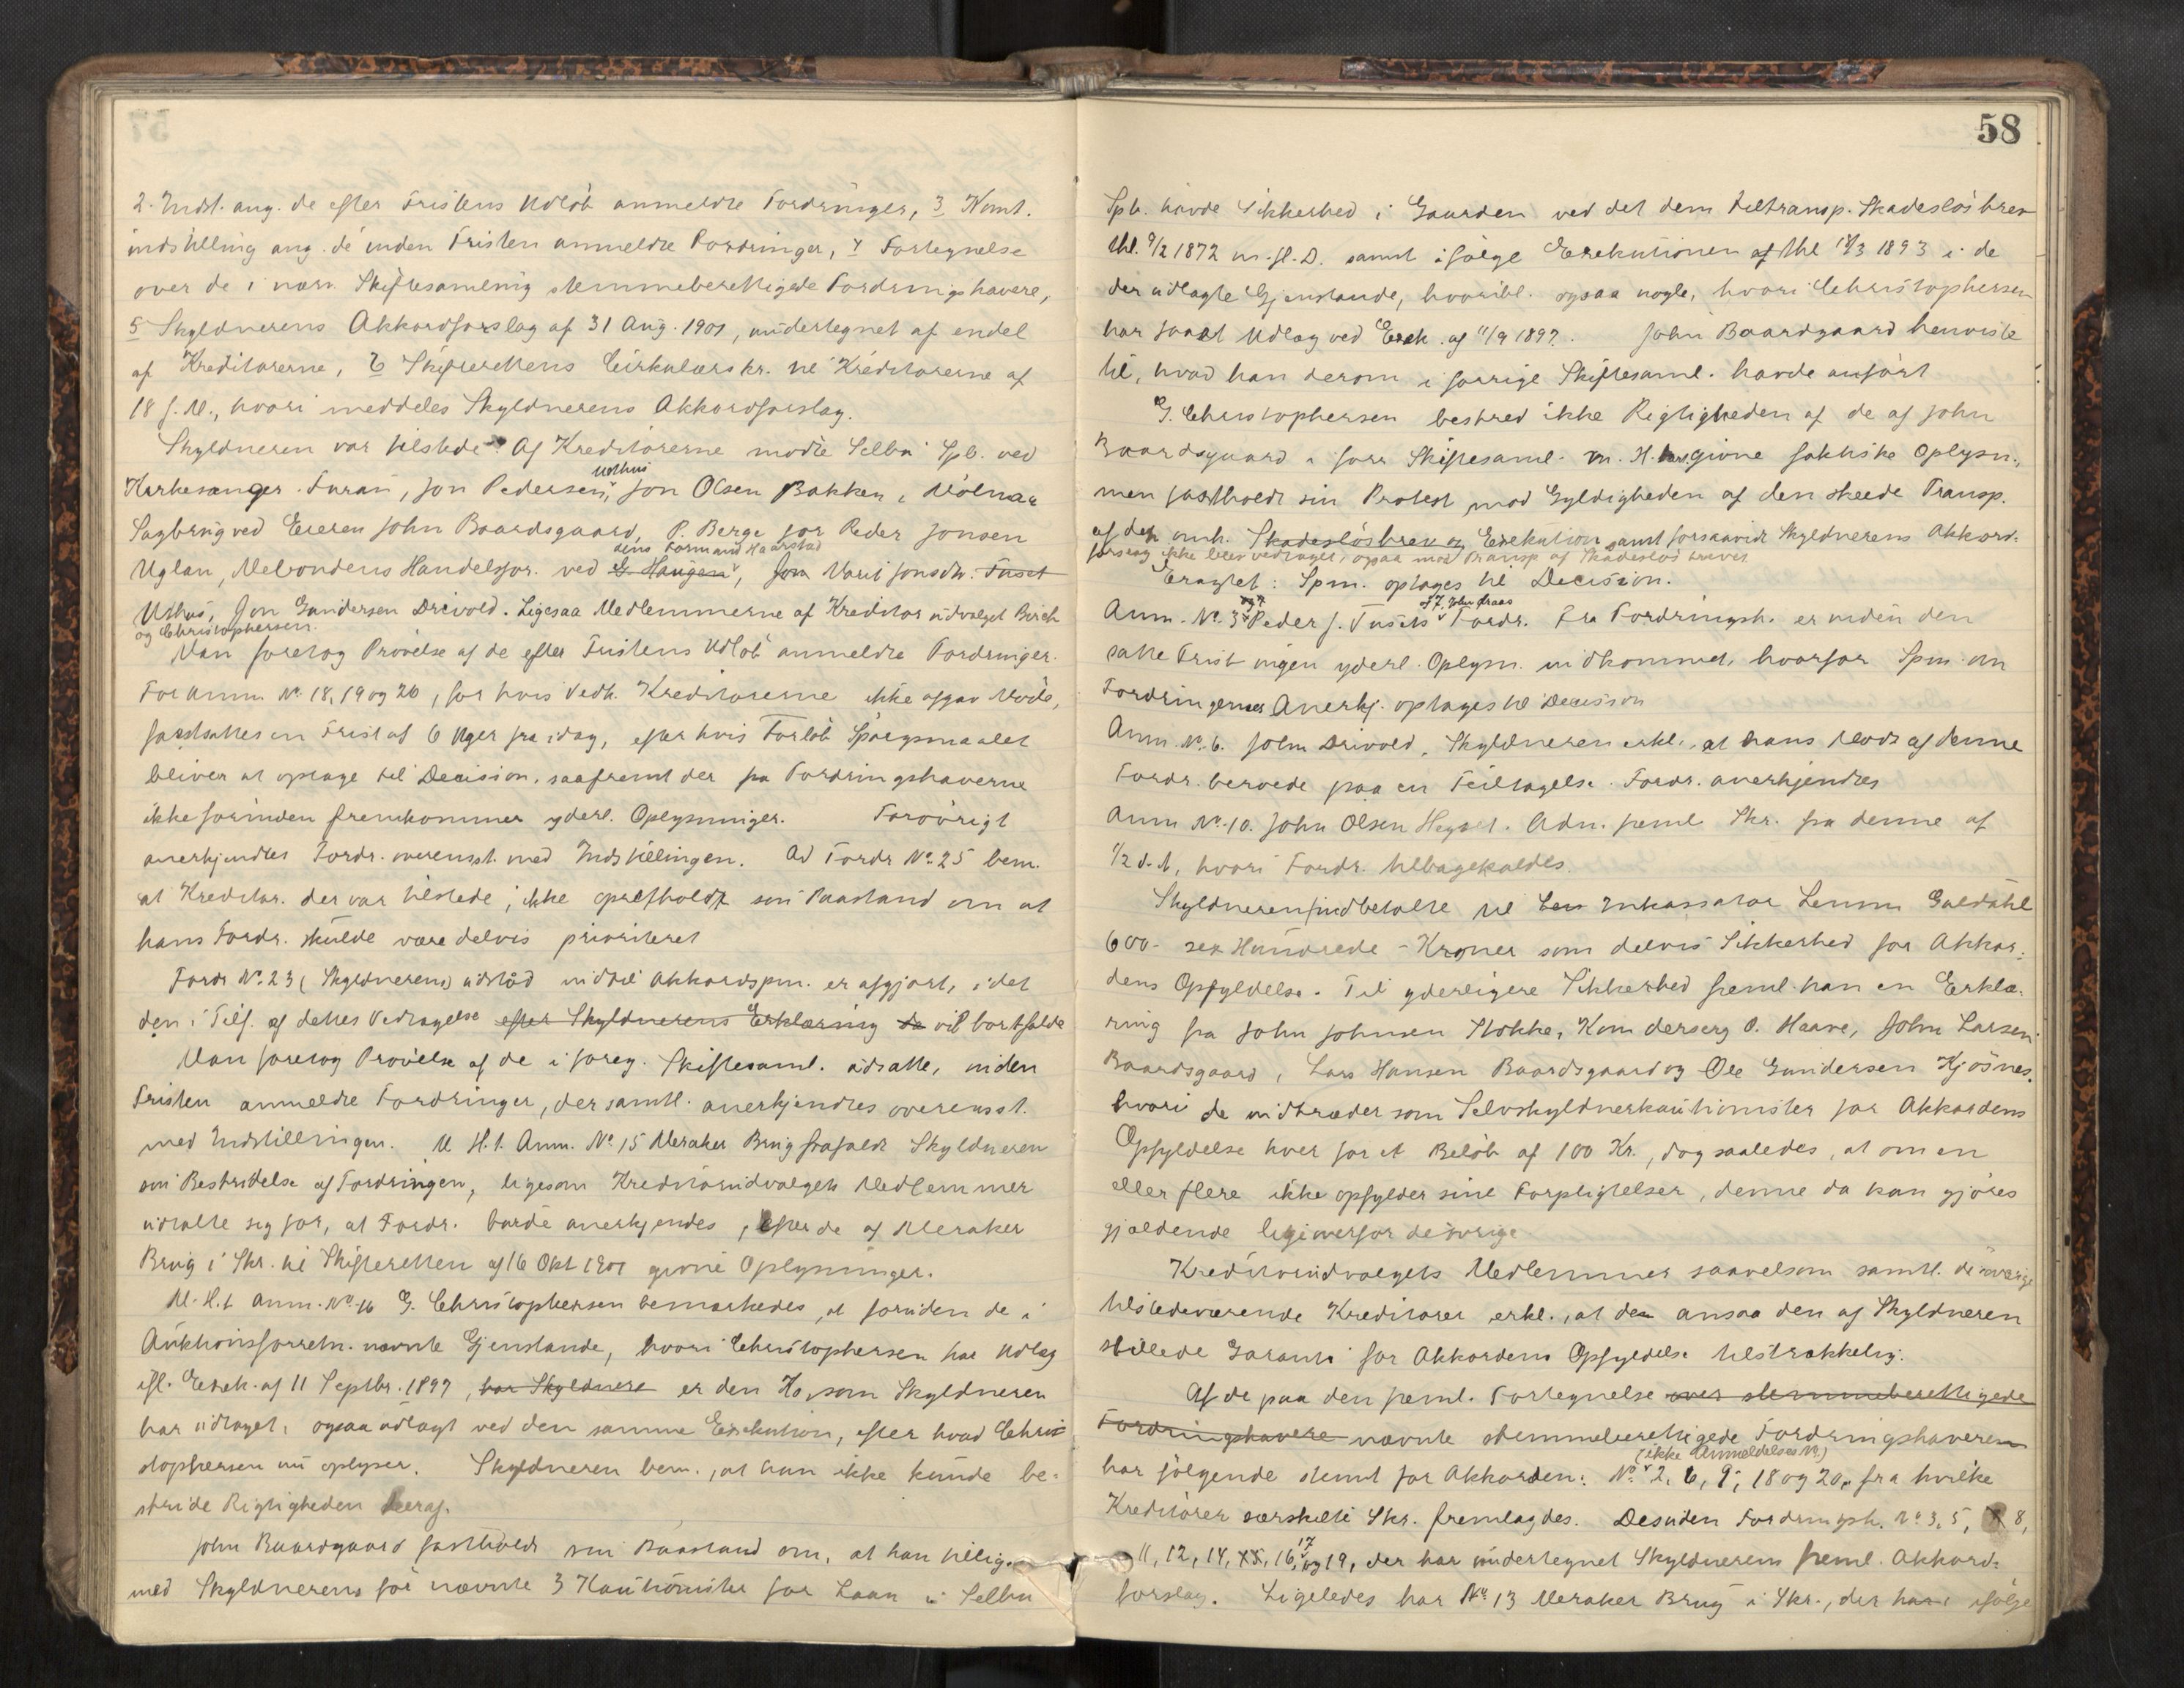 2. Indst. ang. de efter Fristens Udløb anmeldte Fordringer, 3 Komt.
indstilling ang. de inden Fristen anmeldte Fordringer, 4 Fortegnelse
over de i nærv. Skiftesamling stemmeberettigede Fordringshavere,
5 Skyldnerens Akkordforslag af 31 Aug. 1901, undertegnet af endel
af Kreditorerne, 6 Skifterettens Cirkulærskr. til Kreditorerne af
18 f. M., hvori meddeles Skyldnerens Akkordforslag.
Skyldneren var tilstede. Af Kreditorerne mødte Selbu Spb. ved
Kirkesanger Furan, Jon Pedersen Uothus, Jon Olsen Bakken, Mølnaa
Sagbrug ved Eieren John Baardsgaard, P. Berge for Peder Jonsen
Uglan, Nebondens Handelsfor. ved G. Haugen dens Formand Haarstad, Jon Marit Jonsdr. Fuset
Ushus, Jon Gundersen Drivold. Ligesaa Medlemmerne af Kreditorudvalget Birch
og Christophersen.
Man foretog Prøvelse af de efter Fristens Udløb anmeldte Fordringer.
For Anm. No. 18, 19 og 20, for hvis Vedk. Kreditorerne ikke afgav Møde,
fastsattes en Frist af 6 Uger fra idag, efter hvis Forløb Spørgsmaalet
bliver at optage til Decision, saafremt der fra Fordringshaverne
ikke forinden fremkommer yderl. Oplysninger. Forøvrigt
anerkjendtes Fordr. overensst. med Indstillingen. Ad Fordr No. 25 bem.
at Kreditor. der var tilstede, ikke opretholdt sin Paastand om at
hans Fordr. skulde være delvis prioriteret
Fordr No. 23 (Skyldnerens) udstod indtil Akkordspm. er afgjort, idet
den i Tilf. af dettes Vedtagelse efter Skyldnerens Erklæring de vil bortfalde
Man foretog Prøvelse af de i foreg. Skiftesaml. udsatte, inden
Fristen anmeldte Fordringer, der samtl. anerkjendtes overensst.
med Indstillingen. M. H. t. Anm. No 15 Meraker Brug frafaldt Skyldneren
sin Bestridelse af Fordringen, ligesom Kreditorudvalgets Medlemmer
udtalte sig for, at Fordr. burde anerkjendes, efter de af Meraker
Brug i Skr. til Skifteretten af 16 Okt 1901 givne Oplysninger.
M. H. t. Anm. No. 16 G. Christophersen bemærkedes, at foruden de i
Auktionsforretn. nævnte Gjenstande, hvori Christophersen har Udlæg
ifl. Exek. af 11 Septbr. 1897, har Skyldnere er den Ho, som Skyldneren
har udtaget, ogsaa udlagt ved den samme Exekution, efter hvad Chris
stophersen nu oplyser. Skyldneren bem., at han ikke kunde be-
stride Rigtigheden heraf.
John Baardsgaard fastholdt sin Paastand om, at han tillige
med Skyldnerens før nævnte 3 Kautionister for Laan i Selbu
58
Spb. havde Sikkerhed i Gaarden ved det dem tiltransp. Skadesløsbrev
thl. 9/2 1872 m. fl. D. samt ifølge Exekutionen af thl 18/3 1893 i de
der udlagte Gjenstande, hvoribl. ogsaa nogle, hvori Christophersen
har faaet Udlæg ved Exek. af 11/9 1897. John Baardgaard henviste
til, hvad han derom i forrige Skiftesaml. havde anført
G. Christophersen bestred ikke Rigtigheden af de af John
Baardsgaard i forr Skiftesaml. m. H. givne faktiske Oplysn.,
men fastholdt sin Protest mod Gyldigheden af den skeede Transp.
af den omh. Skadesløsbrev og Exekution samt forsaavidt Skyldnerens Akkord-
forslag ikke blev vedtaget, ogsaa mod Transp af Skadesløsbrevet
Eragtet: Spm. optages til Decision.
Anm. No. 3 og 7 Peder J. Fusets Fordr. Fra Fordringsh. er inden den
satte Frist ingen yderl. Oplysn. indkommet, hvorfor Spm. om
Fordringernes Anerkj. optages til Decision
Anm. No. 6. John Drivold, Skyldneren erkl., at hans Mods. af denne
Fordr. beroede paa en Feiltagelse. Fordr. anerkjendtes
Anm No. 10. John Olsen Hegset. Adm. freml Skr. fra denne af
1/2 d. A., hvori Fordr. tilbagekaldes.
Skyldneren indbetalte til Inkassator Guldahl
600 - sex Hundrede - Kroner som delvis Sikkerhed for Akkor-
dens Opfyldelse. Til yderligere Sikkerhed freml. han en Erklæ-
ring fra John Johnsen Stokke, O. Haave, John Larsen
Baardsgaard, Lars Hansen Baardsgaard og Ole Gundersen Kjøsnes,
hvori de indtræder som Selvskyldnerkautionister for Akkordens
Opfyldelse hver for et Beløb af 100 Kr., dog saaledes, at om en
eller flere ikke opfylder sine Forpligtelser, denne da kan gjøres
gjældende ligeoverfor de øvrige
Kreditorudvalgets Medlemmer saavelsom samtl. de øvrige
tilstedeværende Kreditorer erkl., at de ansaa den af Skyldneren
stillede Garanti for Akkordens Opfyldelse tilstrækkelig.
Af de paa den freml. Fortegnelse over stemmeberettigede
Fordringshavere nævnte stemmeberettigede Fordringshavere
har følgende stemt for Akkorden: No. (ikke Anmeldelses No.) 2, 6, 9, 18 og 20, fra hvilke
Kreditorer særskilte Skr. fremlagdes. Desuden Fordringsh. No 3, 5, 8,
11, 12, 14, 15, 16, 17 og 19, der har undertegnet Skyldnerens freml. Akkord-
forslag. Ligeledes har No 13 Meraker Brug i Skr., der har ifølge